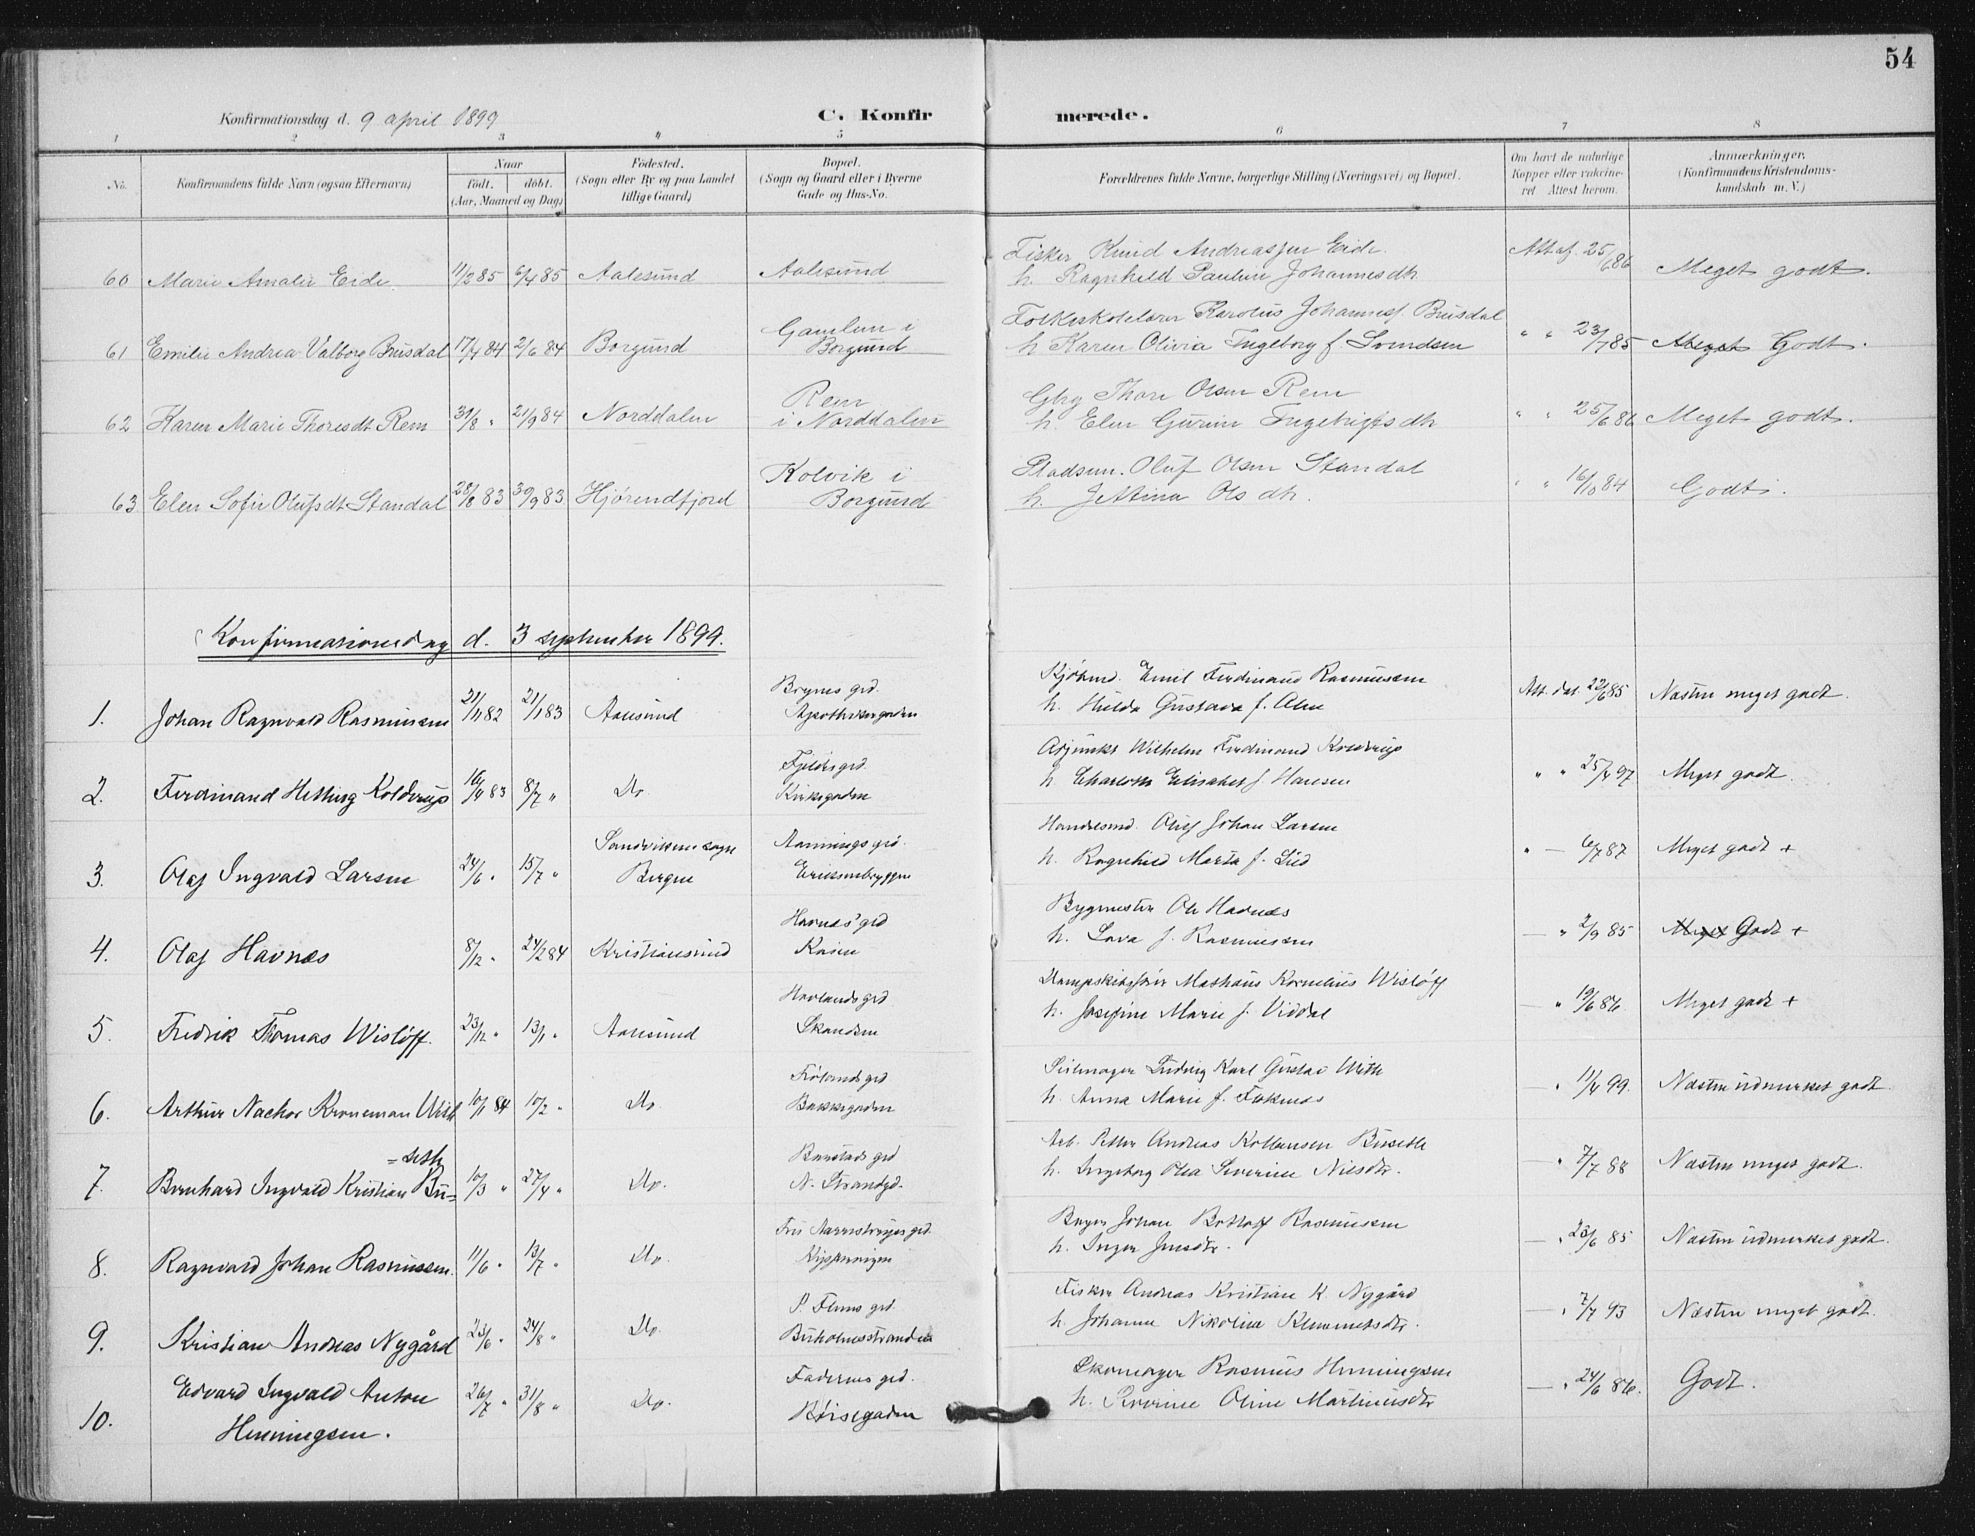 54
Konfirmationsdag d. 9 april 1899
C. Konfirmerede.
1 2 3 4 5 6 7 8
No. Konfirmandens fulde Navn (ogsaa Efternavn) Naar født. døbt. (Aar, Maaned og Dag) Fødested. (Sogn eller By og paa Landet tillige Gaard) Bopæl. (Sogn og Gaard eller i Byerne Gade og Hus-No. Forældrenes fulde Navne, borgerlige Stilling (Næringsvei) og Bopæl. Om havt de naturlige Kopper eller vakcineret Attest herom. Anmærkninger. (Konfirmandens Kristendomskundskab m. V.)
60 Marie Amalie Eide 11/2 85 6/4 85 Aalesund Aalesund Fisker Knud Andreassen Eide h. Ragnhild Pauline Johannesdtr. Att. af 25/6 86 Meget godt.
61 Emilie Andrea Valborg Brusdal 17/4 84 2/6 84 Borgund Gamlem i Borgund Folkeskolelærer Karolus Johannes. Brusdal h. Karen Olivia Ingeborg f. Svendsen " " 23/7 85 Meget Godt.
62 Karen Marie Thoresdt Rem 31/8 " 21/9 84 Norddalen Rem i Norddalen Gbrg Thore Olsen Rem h. Elen Gurine Ingebrigtsdtr " " 25/6 86 Meget godt.
63 Elen Sofie Olufsdt Standal 28/8 83 30/9 83 Hjørendfjord Kolvik i Borgund Pladsm. Oluf Olsen Standal h. Jettina Olsdtr. " " 16/10 84 Godt.
Konfirmasionsdag d. 3 september 1899.
1. Johan Ragnvald Rasmussen 21/11 82 21/1 83 Aalesund Brynes grd. Apothekergaden Kjøbmd. Emil Ferdinand Rasmussen h. Hulda Gustava f. Alm Att. dat. 22/6 85 Næsten meget godt.
2. Ferdinand Hetting Kolderup 16/4 83 8/7 " Do Fjeldes grd. Kirkegaden Adjunkt Wilhelm Ferdinand Kolderup h. Charlotte Elisabet f. Hansen " " 25/4 97 Meget godt.
3. Olaf Ingvald Larsen 24/6 " 15/7 " Sandvikens sogn Bergen Aannings grd. Eriksenbryggen Handelsmd. Oluf Johan Larsen h. Ragnhild Marta f. Lied " — 6/7 87 Meget godt +
4. Olaf Havnæs 8/12 " 24/2 84 Kristiansund Havnæs' grd Kaien Bygmester Ole Havnæs h. Lava f. Rasmussen — " 2/9 85 Meget Godt +
5. Fredrik Thomas Wisløff. 23/12 " 13/1 " Aalesund Hovlands grd. Skandsen Dampskibsfører Mathæus Kornelius Wisløff h. Josefine Marie f. Viddal — " 19/6 86. Meget godt +
6. Arthur Nachor Kroneman With 10/1 84 10/2 " Do. Frølands grd Bakkegaden Seilmager Ludvig Karl Gustav With h. Anna Marie f. Fiskenes — " 11/4 99. Næsten udmerket godt.
7. Bernhard Ingvald Kristian Bu= =seth 10/3 " 27/4 " Do. Barstads grd N. Strandgd. Arb. Petter Andreas Kolbensen Buseth h. Ingeborg Olia Severine Nilsdtr. — " 7/7 88 Næsten meget godt.
8. Ragnvard Johan Rasmussen. 11/6 " 13/7 " Do. Kipervigen Bager Johan Bottolf Rasmussen h. Inger Jensdtr. — " 23/6 85 Næsten udmerket godt.
9. Kristian Andreas Nygård 23/6 " 24/8 " Do. P. Flems grd. Buholmsstranden Fisker Andreas Kristian K. Nygård h. Johanne Nikolina Klemmetsdtr. — " 7/7 93 Næsten meget godt.
10. Edvard Ingvald Anton Henningsen. 26/7 " 31/8 " Do. Faderens grd. Bøisegaden Skomager Rasmus Henningsen h. Severine Oline Martinusdtr — " 24/6 86. Godt.